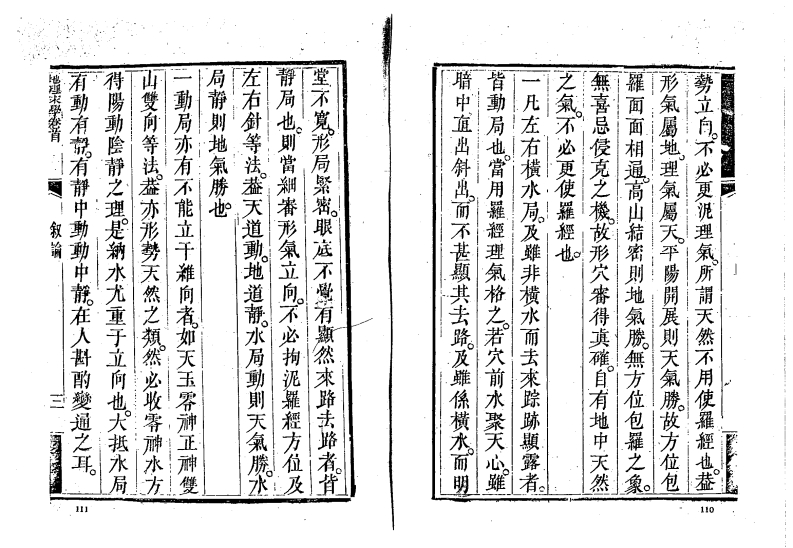 勢立向。不必更泥理氣。所謂天然不用使羅經也。葢
形氣屬地。理氣屬天。平陽開展則天氣勝。故方位包
羅面面相通。高山結密則地氣勝。無方位包羅之象。
無喜忌侵克之機。故形穴審得真確。自有地中天然
之氣。不必更使羅經也。
一凡左右橫水局。及雖非橫水而去來踪跡顯露者。
皆動局也。當用羅經理氣格之。若穴前水聚天心。雖
暗中直出斜出。而不甚顯其去路。及雖係橫水。而明
110
堂不寬。形局緊密。眼底不覺有顯然來路去路者。皆
靜局也。則當細審形氣立向。不必拘泥羅經方位及
左右針等法。葢天道動。地道靜。水局動則天氣勝。水
局靜則地氣勝也。
一動局亦有不能立干維向者。如天玉零神正神雙
山雙向等法。葢亦形勢天然之類。然必收零神水方
得陽動陰靜之理。是納水尤重于立向也。大抵水局
有動有靜。有靜中動動中靜。在人斟酌變通之耳。
地理末學卷首
敘論
三
111